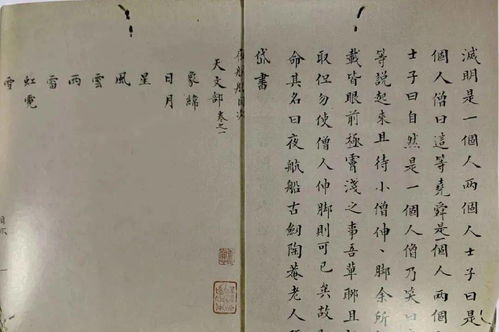 滅明是一個人兩個人士子曰是
個人僧曰這等堯舜是一個人兩
士子曰自然是一個人僧乃笑曰
等說起來且待小僧伸、脚余所
載皆眼前極膚淺之事吾輩聊且
取但勿使僧人伸脚則可已矣故
命其名曰夜航船古劒陶菴老人
岱書
夜航船目次
天文部卷之一
象緯
日月
星
風
雲
雨
雷
虹霓
雪
目次 一